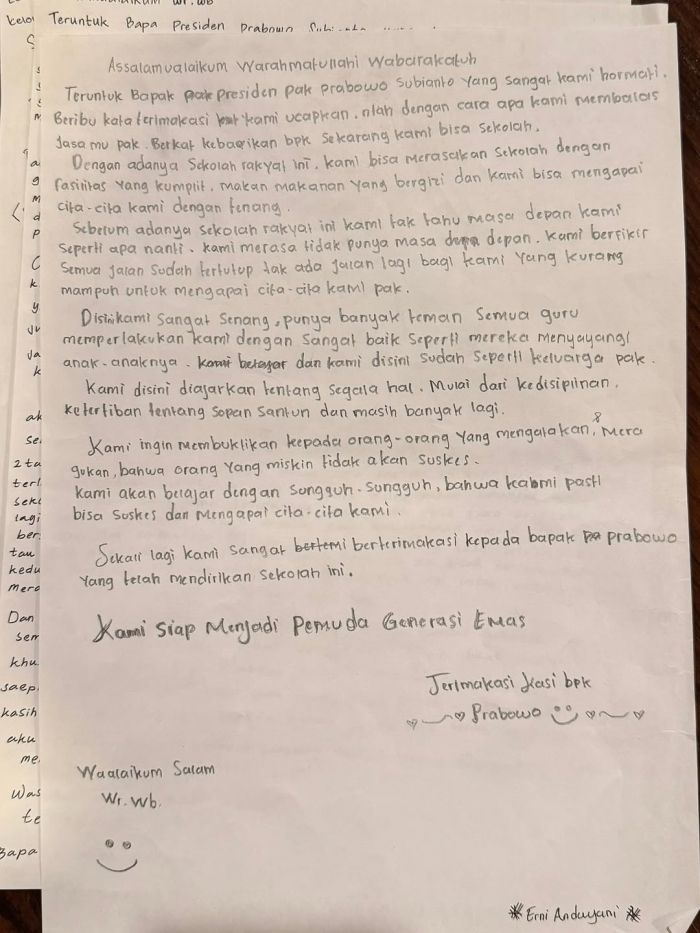 Teruntuk Bapa Presiden Prabowo
Assalamualaikum Warahmatullahi Wabarakatuh
Teruntuk Bapak pak presiden pak prabowo subianto yang sangat kami hormati.
Beribu kata terimakasi kami ucapkan. ntah dengan cara apa kami membalas
Jasa mu pak. Berkat kebaikan bpk sekarang kami bisa sekolah.
Dengan adanya sekolah rakyat ini. kami bisa merasakan sekolah dengan
fasilitas yang kumplit. makan makanan yang bergizi dan kami bisa mengapai
cita-cita kami dengan tenang.
Sebelum adanya sekolah rakyat ini kami tak tahu masa depan kami
seperti apa nanti. kami merasa tidak punya masa depan. kami berfikir
semua jalan sudah tertutup tak ada jalan lagi bagi kami yang kurang
mampuh untuk mengapai cita-cita kami pak.
Disini kami sangat senang, punya banyak teman semua guru
memperlakukan kami dengan sangat baik seperti mereka menyayangi
anak-anaknya. kami belajar dan kami disini sudah seperti keluarga pak.
Kami disini diajarkan tentang segala hal. Mulai dari kedisiplinan,
ketertiban tentang sopan santun dan masih banyak lagi.
Kami ingin membuktikan kepada orang-orang yang mengatakan, & mera
gukan, bahwa orang yang miskin tidak akan suskes.
Kami akan belajar dengan sungguh-sungguh, bahwa kami pasti
bisa suskes dan mengapai cita-cita kami.
Sekali lagi kami sangat bertemi berterimakasi kepada bapak pa prabowo
yang telah mendirikan sekolah ini.
Kami siap Menjadi Pemuda Generasi Emas
Terimakasi kasi bpk
Prabowo
Waalaikum Salam
Wr. Wb.
Erni Andayani